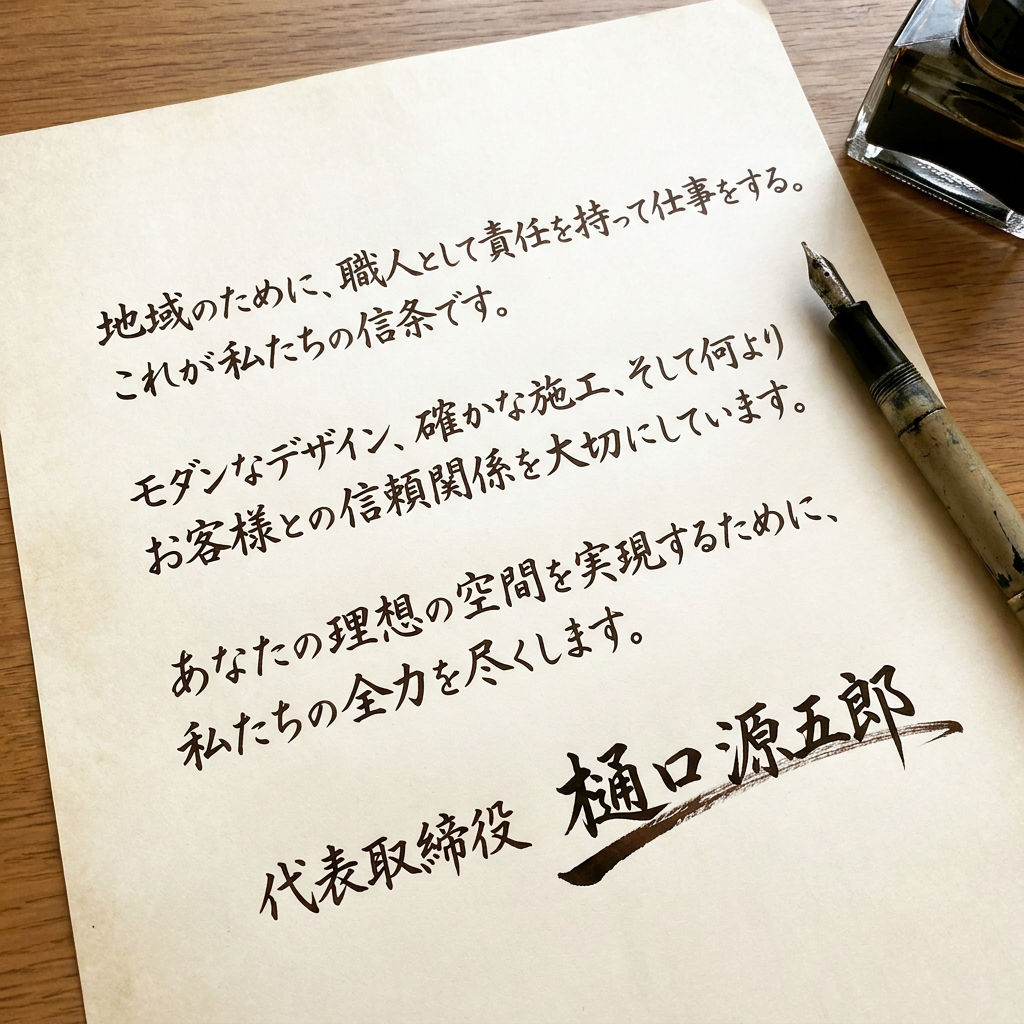 地域のために、職人として責任を持って仕事をする。
これが私たちの信条です。
モダンなデザイン、確かな施工、そして何より
お客様との信頼関係を大切にしています。
あなたの理想の空間を実現するために、
私たちの全力を尽くします。
代表取締役 樋口源五郎